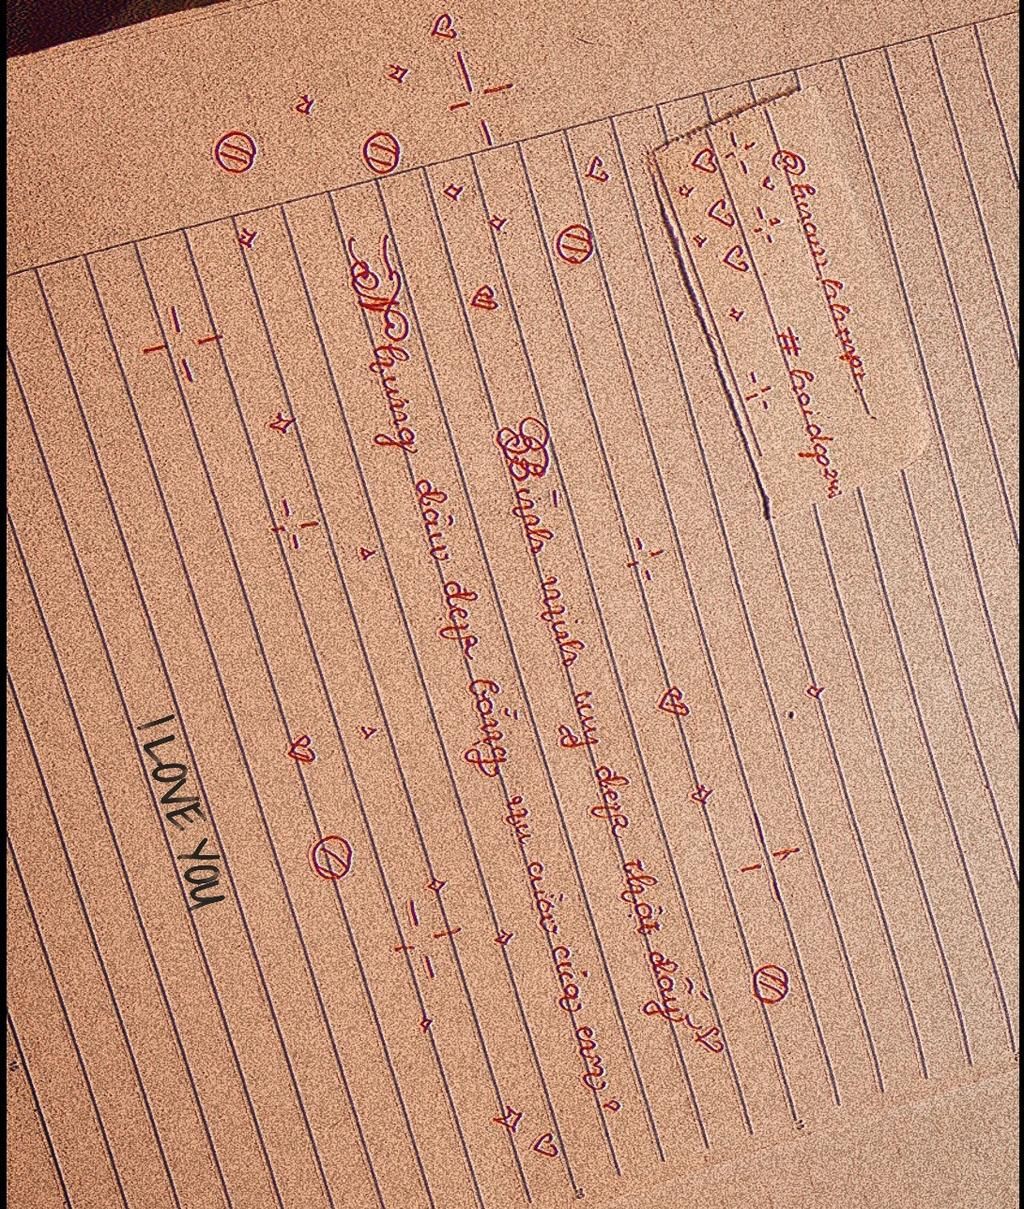 Bình minh đẹp thật đấy
Nhưng đâu đẹp bằng nụ cười của em?
I LOVE YOU